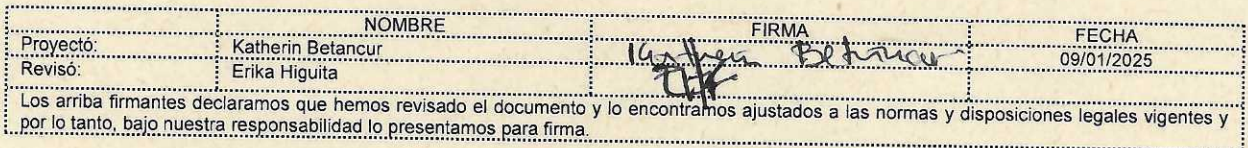 NOMBRE FIRMA FECHA
Proyectó: Katherin Betancur Katherin Betancur 09/01/2025
Revisó: Erika Higuita
Los arriba firmantes declaramos que hemos revisado el documento y lo encontramos ajustados a las normas y disposiciones legales vigentes y
por lo tanto, bajo nuestra responsabilidad lo presentamos para firma.